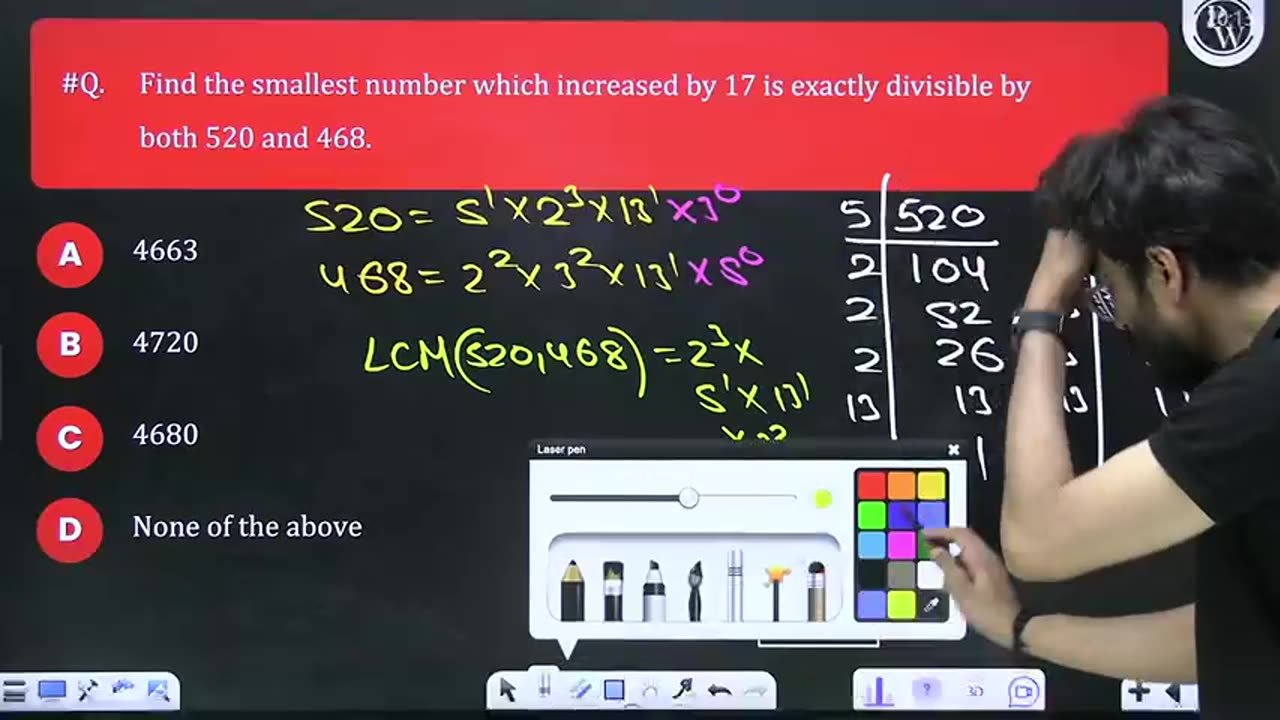 #Q. Find the smallest number which increased by 17 is exactly divisible by
both 520 and 468.
A 4663
B 4720
C 4680
D None of the above
520 = 5¹ × 2³ × 13¹ × 3⁰
468 = 2² × 3² × 13¹ × 5⁰
LCM(520,468) = 2³ ×
5¹ × 13¹
5 520
2 104
2 52
2 26
13 13
1
Laser pen
3D
PW